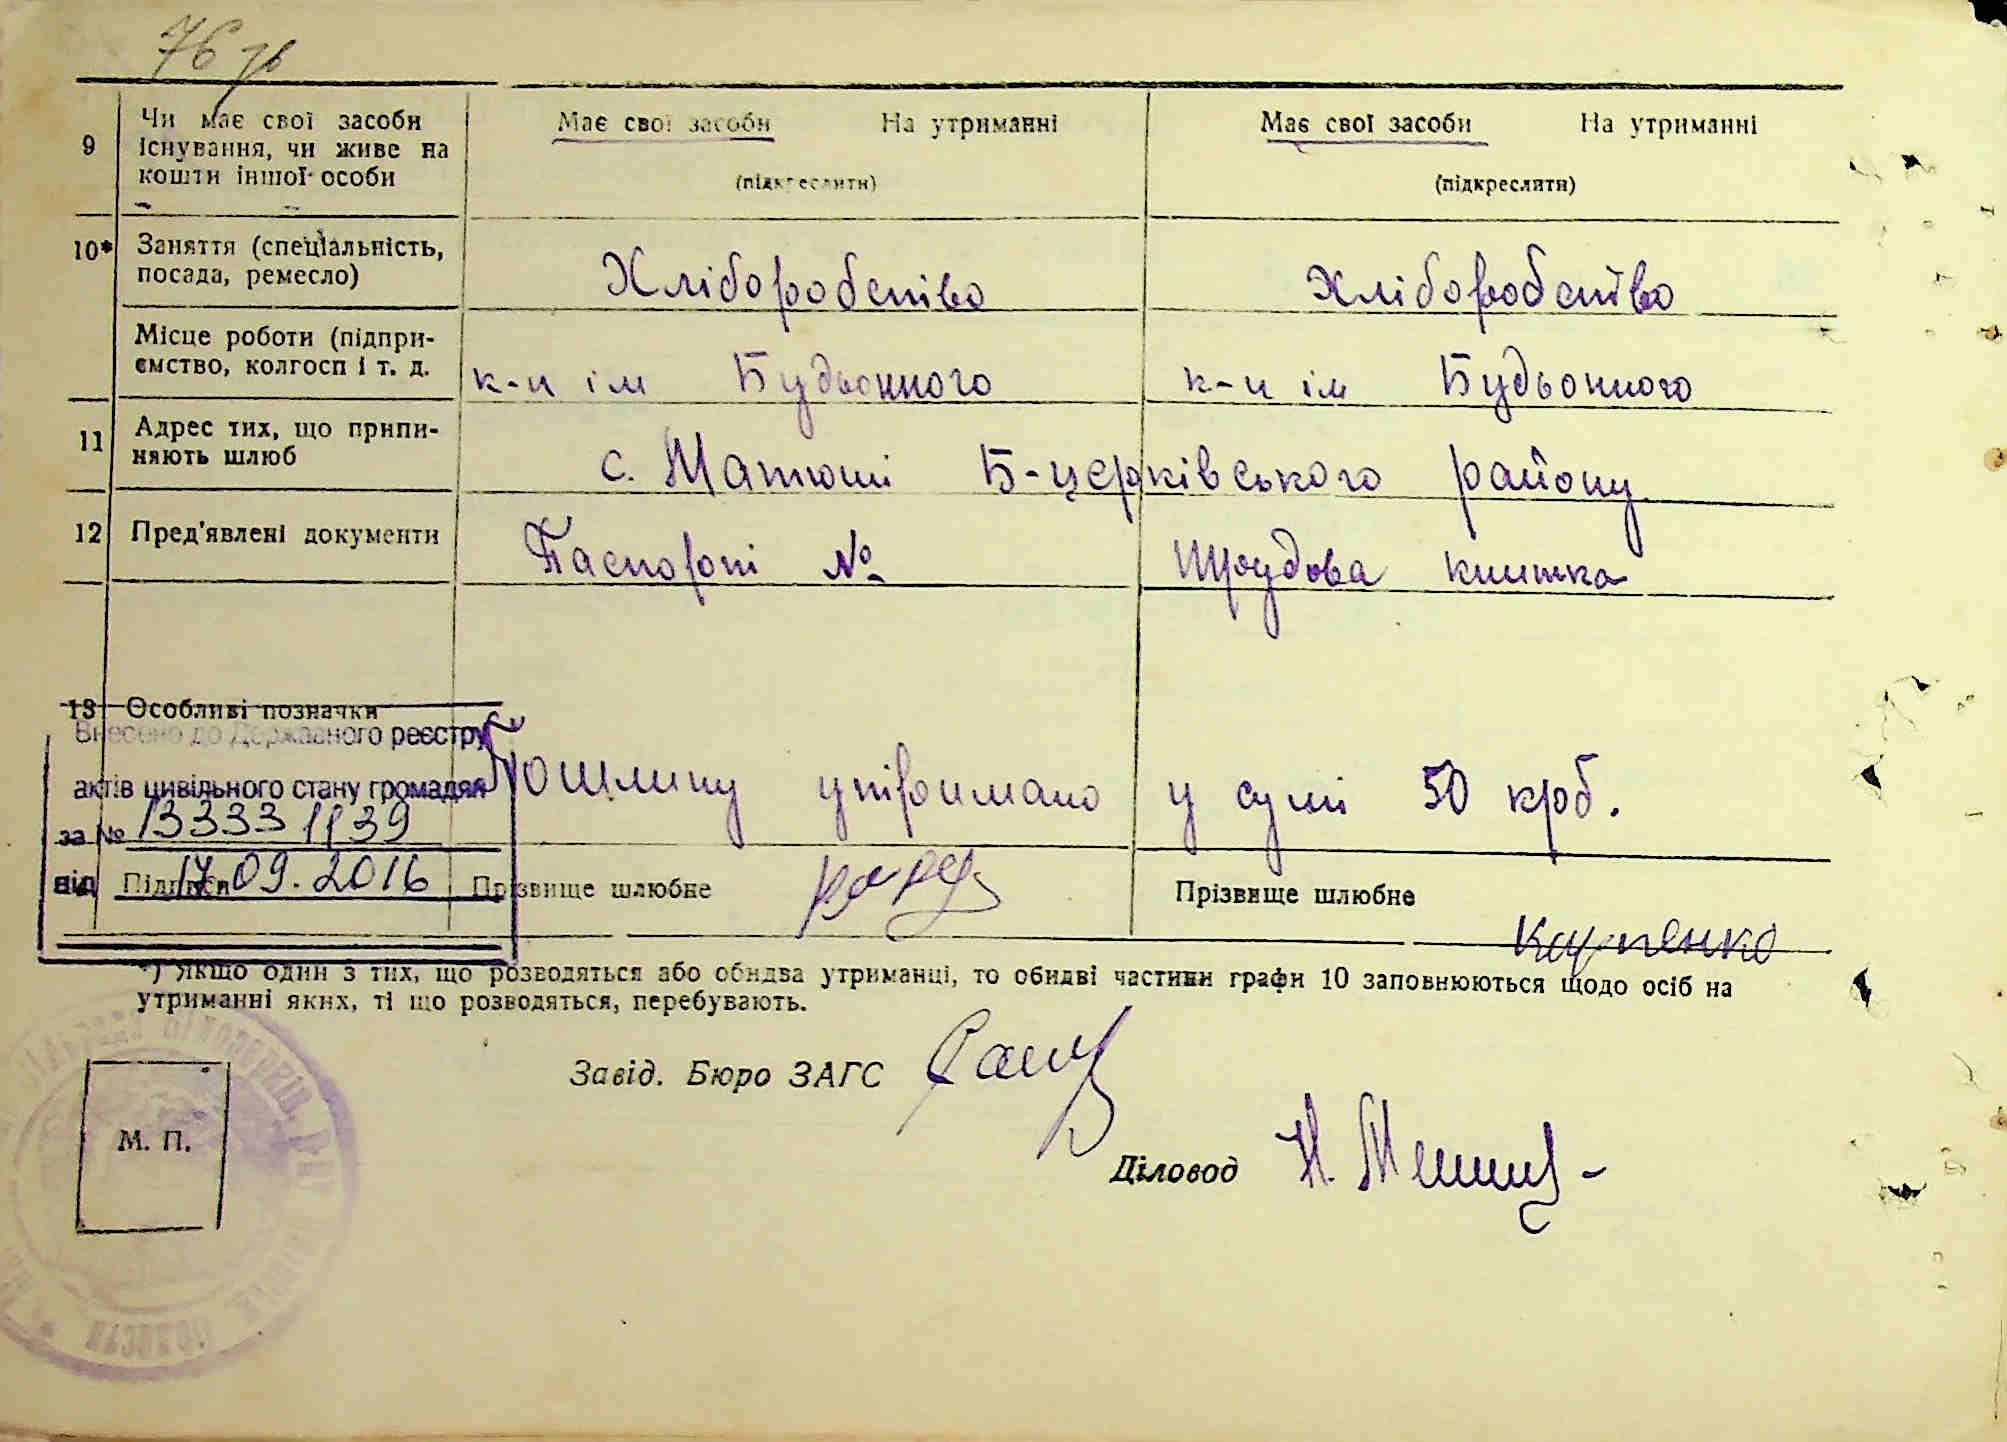 76 зв
9 Чи має свої засоби існування, чи живе на кошти іншої особи
Має свої засоби На утриманні
(підкреслити)
Має свої засоби На утриманні
(підкреслити)
10* Заняття (спеціальність, посада, ремесло)
Хліборобство
Хліборобство
Місце роботи (підприємство, колгосп і т. д.
к-п ім Будьонного
к-п ім Будьонного
11 Адрес тих, що припиняють шлюб
с. Матюші Б-церківського району
12 Пред'явлені документи
Паспорт №
Трудова книжка
13 Особливі позначки
Пошлину утримано у сумі 50 крб.
Внесено до Державного реєстру
актів цивільного стану громадян
за № 13333 1139
від 17.09.2016
Підписи
Прізвище шлюбне
Прізвище шлюбне
Карпенко
*) Якщо один з тих, що розводяться або обидва утриманці, то обидві частини графи 10 заповнюються щодо осіб на
утриманні яких, ті що розводяться, перебувають.
Завід. Бюро ЗАГС
М. П.
Діловод